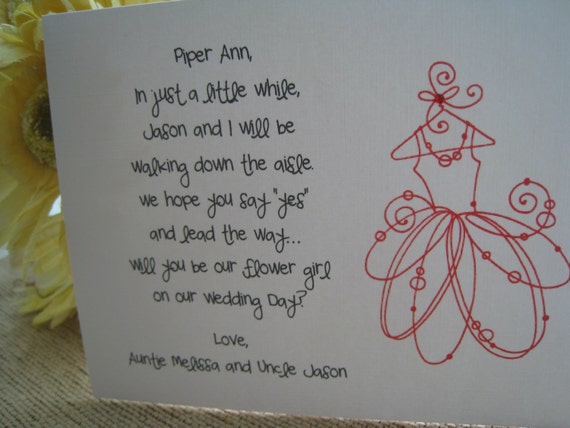 Piper Ann,
In just a little while,
Jason and I will be
walking down the aisle.
we hope you say "yes"
and lead the way...
will you be our flower girl
on our wedding Day?
Love,
Auntie Melissa and Uncle Jason